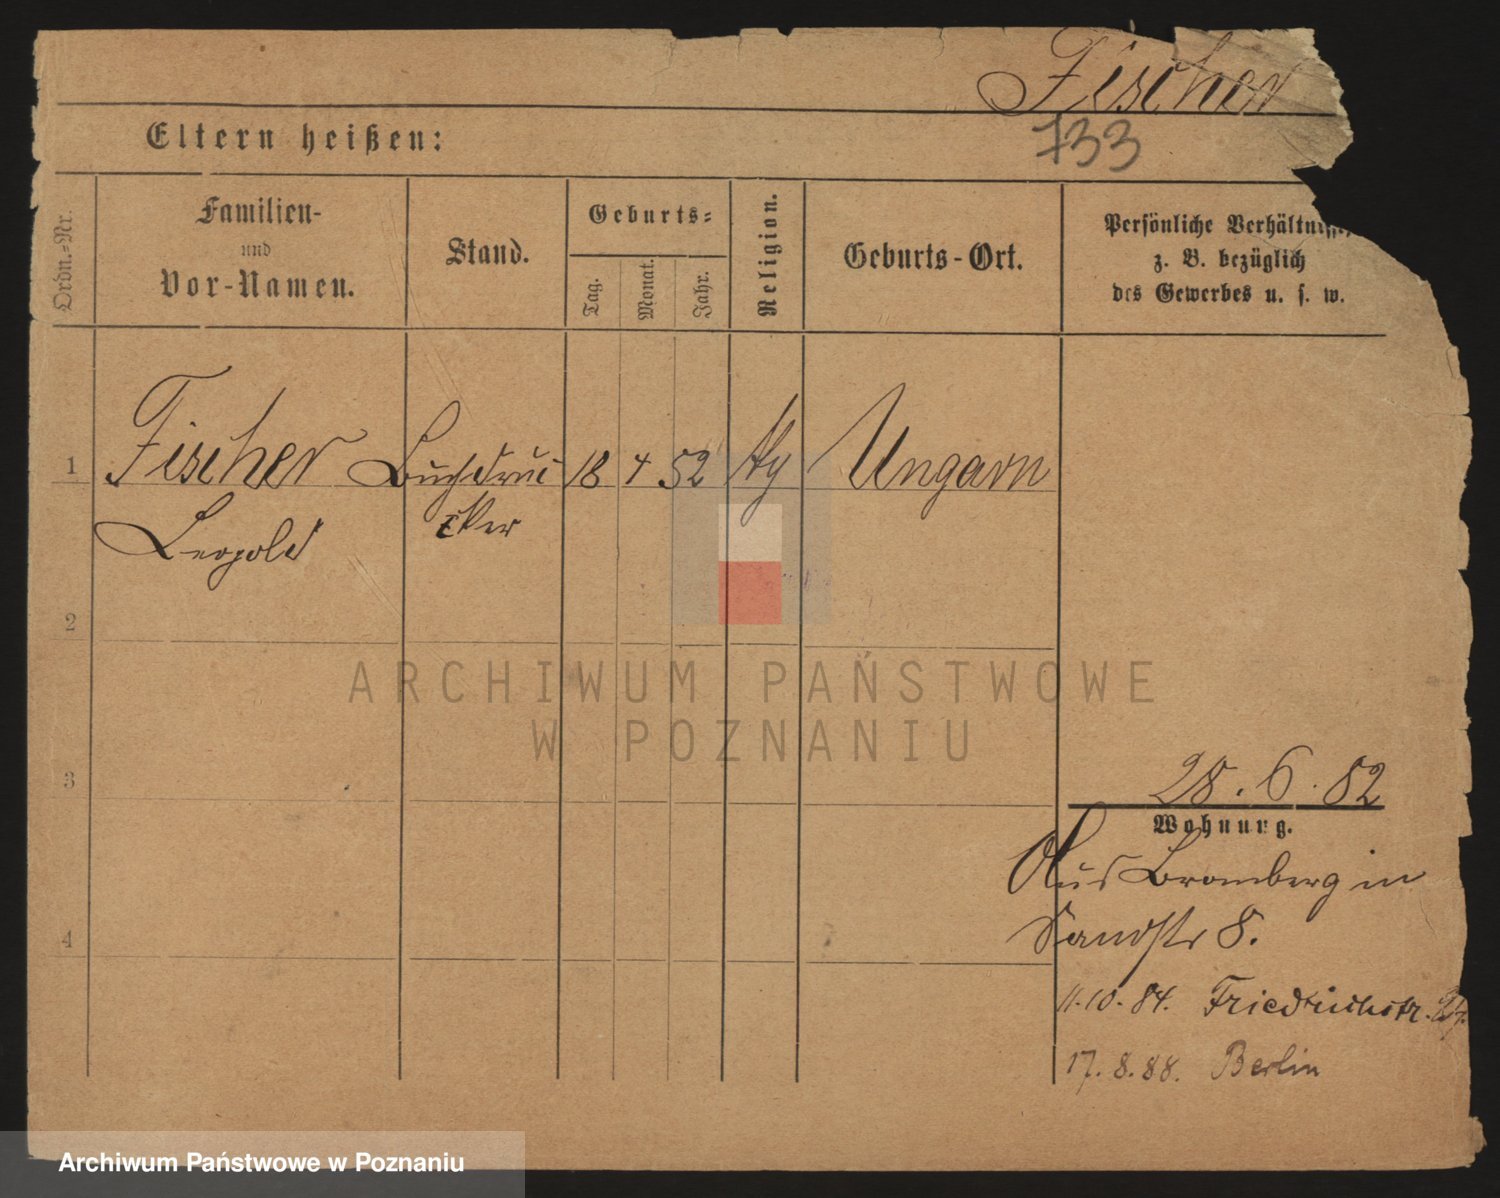 Fischer
733
Eltern heißen:
Ordn.-Nr.
Familien-
und
Vor-Namen.
Stand.
Geburts-
Tag.
Monat.
Jahr.
Religion.
Geburts-Ort.
Persönliche Verhältnisse,
z. B. bezüglich
des Gewerbes u. s. w.
1
Fischer Buchdru 18 4 52 Ungarn
Leopold cker
2
ARCHIWUM PAŃSTWOWE
W POZNANIU
3
28.6.82
Wohnung.
Aus Bromberg in
Sandstr 8.
4
11.10.84. Friedrichstr.
17.8.88. Berlin
Archiwum Państwowe w Poznaniu